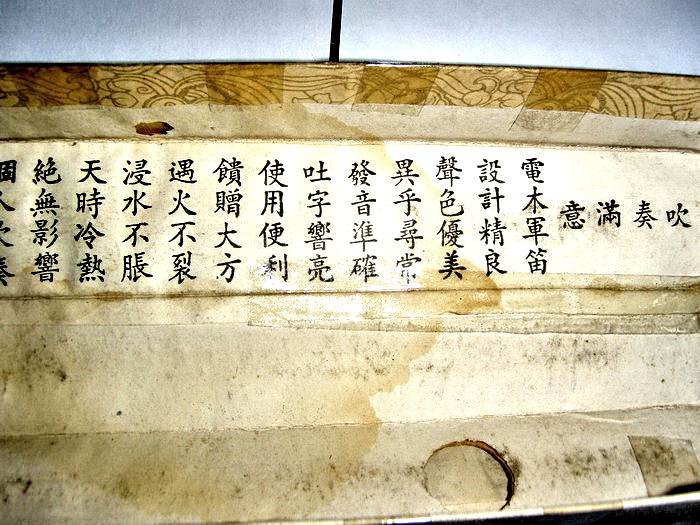 吹奏滿意
電本軍笛
設計精良
聲色優美
異乎尋常
發音準確
吐字響亮
使用便利
饋贈大方
遇火不裂
浸水不脹
天時冷熱
絕無影響
個人吹奏